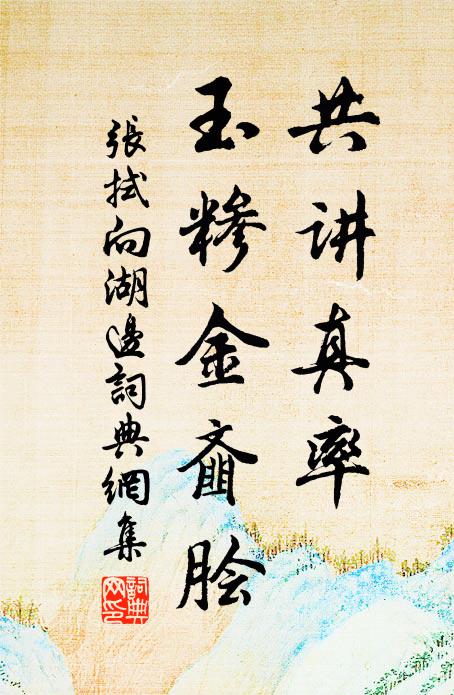 共讲真率
玉糁金齑脍
張拭向湖邊詞典網集
詞典网印